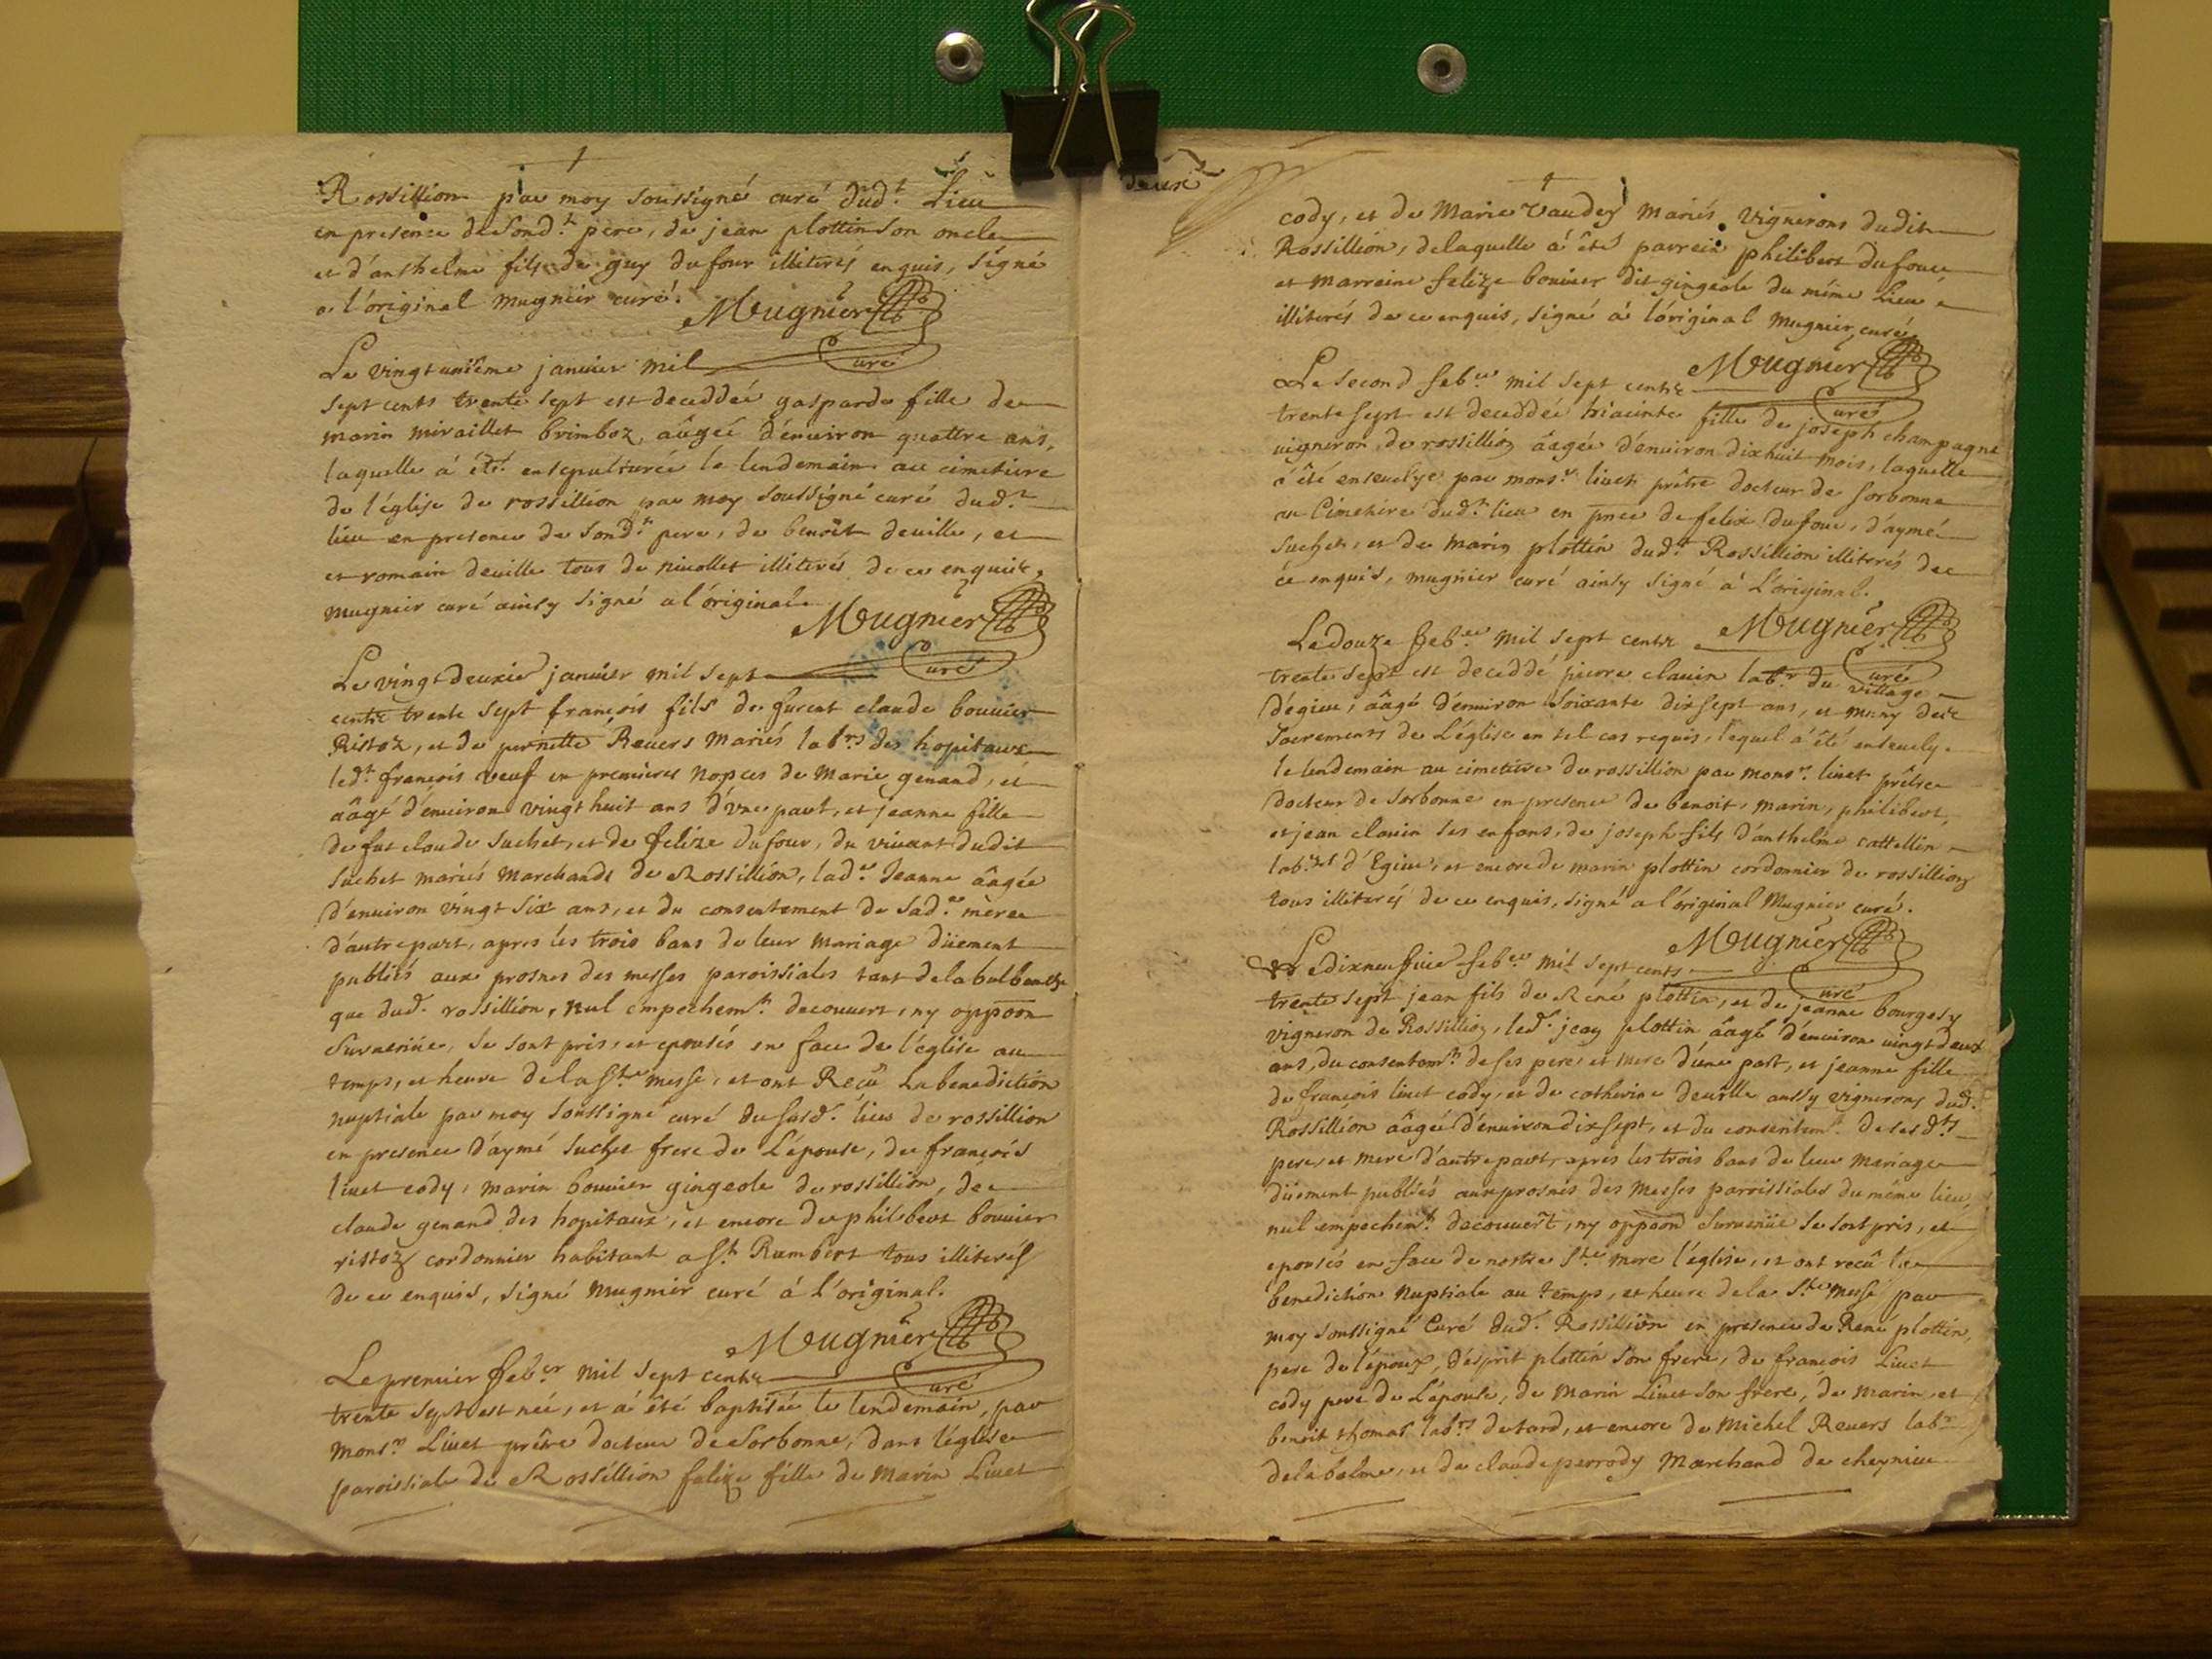 Rossillion par moy soussigné curé dud.t Lieu
en presence de sond.t pere, de jean plottin son oncle
et d'anthelme fils de guy dufour illiterés enquis, signé
a l'original mugnier curé.
Mugnier
curé
Le vingt unième janvier mil
sept cents trente sept est deceddée gasparde fille de
marin miraillet brimboz, âagée d'environ quattre ans,
laquelle à été ensepulturée le lendemain au cimetiere
de l'église de rossillion par moy soussigné curé dud.t
lieu en presence de sond.t pere, de benoit deville, et
et romain deville tous de nivollet illiterés de ce enquis,
mugnier curé ainsy signé a l'original
Mugnier
curé
Le vingt deuxie janvier mil sept
cents trente sept francois fils de furent claude bouvier
Ristoz, et de pernette Revers mariés lab.rs des hopitaux
led.t francois veuf en premieres nopces de Marie genand, et
âagé d'environ vingt huit ans d'vne part, et jeanne fille
de fut claude suchet, et de felize dufour, du vivant dudit
suchet mariés marchands de Rossillion, lad.e Jeanne âagée
d'environ vingt six ans, et du consentement de sad.e mère
d'autre part, apres les trois bans de leur mariage düement
publiés aux prosnes des messes paroissiales tant de la bulbenche
que dud. rossillion, nul empechem.t decouvert, ny oppoon
survenüe, se sont pris, et epousés en face de l'eglise au
temps, et heure de la S.te messe, et ont Reçû la benediction
nuptiale par moy soussigné curé du susd.t lieu de rossillion
en presence d'aymé suchet frere de L'épouse, de francois
livet cody, marin bouvier gingeole de rossillion, de
claude genand des hopitaux, et encore de philibert bouvier
ristoz cordonnier habitant a S.t Rambert tous illiterés
de ce enquis, signé mugnier curé à l'original.
Mugnier
curé
Le premier feb.er mil sept cents
trente sept est née, et à été baptisée le lendemain, par
mons.r Livet prêtre docteur de Sorbonne, dans l'église
paroissiale de Rossillion felize fille de marin Livet
deux
cody, et de Marie Vaudey mariés vignerons dudit
Rossillion, de laquelle à été parrein philibert dufour
et marreine felize bouvier dit gingeole du même Lieu
illiterés de ce enquis, signé à l'original mugnier curé
Mugnier
curé
Le second feb.er mil sept cents
trente sept est deceddée hiacinte fille de joseph champagne
vigneron de rossillion âagée d'environ dixhuit mois, laquelle
à été ensevelye par mons.r livet prêtre docteur de sorbonne
au Cimetiere dud.t lieu en pnce de felix dufour, d'aymé
suchet, et de marin plottin dud.t Rossillion illiterés de
ce enquis, mugnier curé ainsy signé à L'original.
Mugnier
curé
Le douze feb.er mil sept cents
trente sept est deceddé pierre clavin lab.r du village
d'egieu, âagé d'environ soixante dixsept ans, et muny des
sacrements de L'église en tel cas requis, lequel à été ensevely
le lendemain au cimetiere de rossillion par mons.r livet prêtre
docteur de sorbonne en presence de benoit, marin, philibert,
et jean clavin ses enfans, de joseph fils d'anthelme cattellin
lab.rs d'Egieu, et encore de marin plottin cordonnier de rossillion
tous illiterés de ce enquis, signé a l'original Mugnier curé.
Mugnier
curé
Le dixneufvie feb.er mil sept cents
trente sept jean fils de Réné plottin, et de jeanne bourgey
vigneron de Rossillion, led. jean plottin âagé d'environ vingt deux
ans, du consentem.t de ses pere, et mere d'une part, et jeanne fille
de francois livet cody, et de catherine deville aussy vignerons dud.
Rossillion âagée d'environ dixsept, et du consentem.t de sesd.ts
pere, et mere d'autre part, apres les trois bans de leur mariage
düement publiés aux prosnes des Messes paroissiales du même lieu,
nul empechem.t decouvert, ny oppoon survenüe se sont pris, et
epousés en face de nostre S.te mere l'église, et ont recû la
benediction nuptiale au temps, et heure de la S.te messe par
moy soussigné Curé dud. Rossillion en presence de René plottin,
pere de l'époux, d'esprit plottin son frere, de francois Livet
cody pere de L'épouse, de marin Livet son frere, de marin, et
benoit thomas lab.rs de tard, et encore de Michel Revers lab.r
de la balme, et de claude perrody Marchand de cheynieu